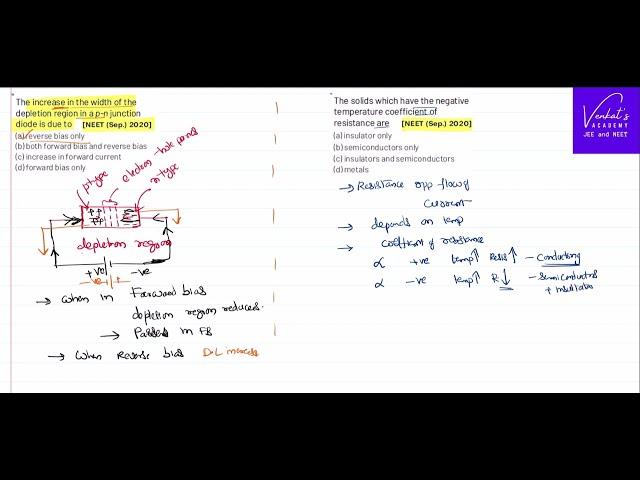 The increase in the width of the
depletion region in a p-n junction
diode is due to [NEET (Sep.) 2020]
(a) reverse bias only
(b) both forward bias and reverse bias
(c) increase in forward current
(d) forward bias only
electron-hole pairs
p type
n type
++
++
depletion region
+ve -ve
-ve +
→ when in Forward bias
depletion region reduces.
→ Passes in FB
→ when Reverse bias D.L increases
The solids which have the negative
temperature coefficient of
resistance are [NEET (Sep.) 2020]
(a) insulator only
(b) semiconductors only
(c) insulators and semiconductors
(d) metals
→ Resistance opp flow of
current
→ depends on temp
→ coefficient of resistance
α +ve temp↑ Resis↑ - Conductors
α -ve temp↑ R↓ - Semiconductors
+ insulators
Venkat's
ACADEMY
JEE and NEET